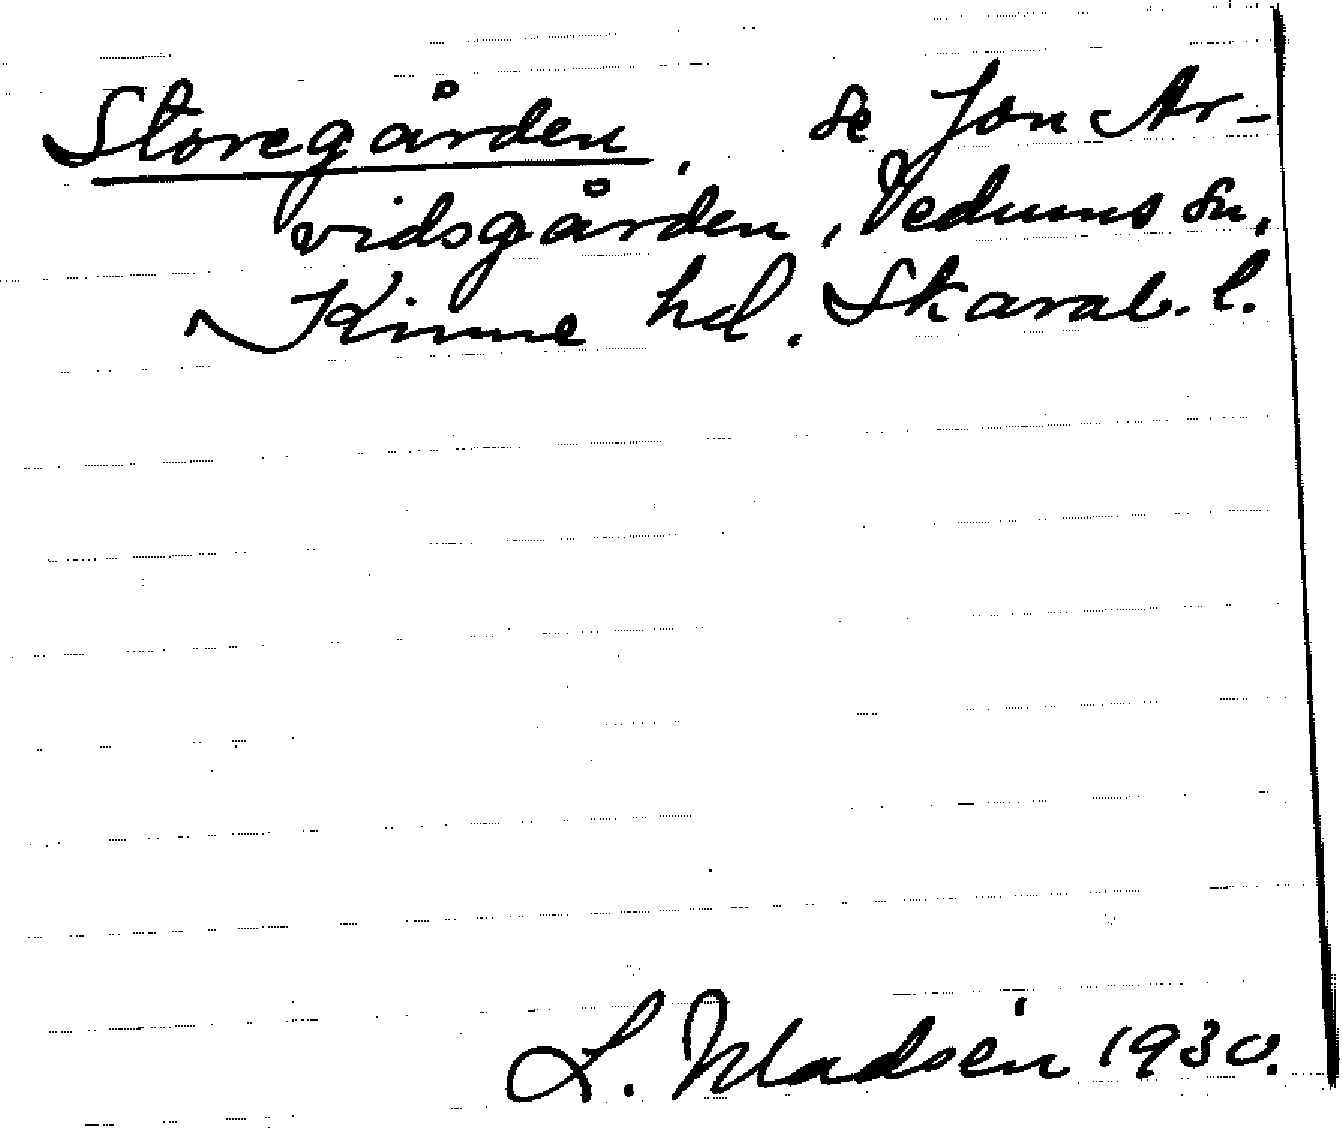 Storegården, se Jon Ar-
vidsgården, Vedums sn,
Kinne hd. Skarab. l.
L. Madsén 1930.